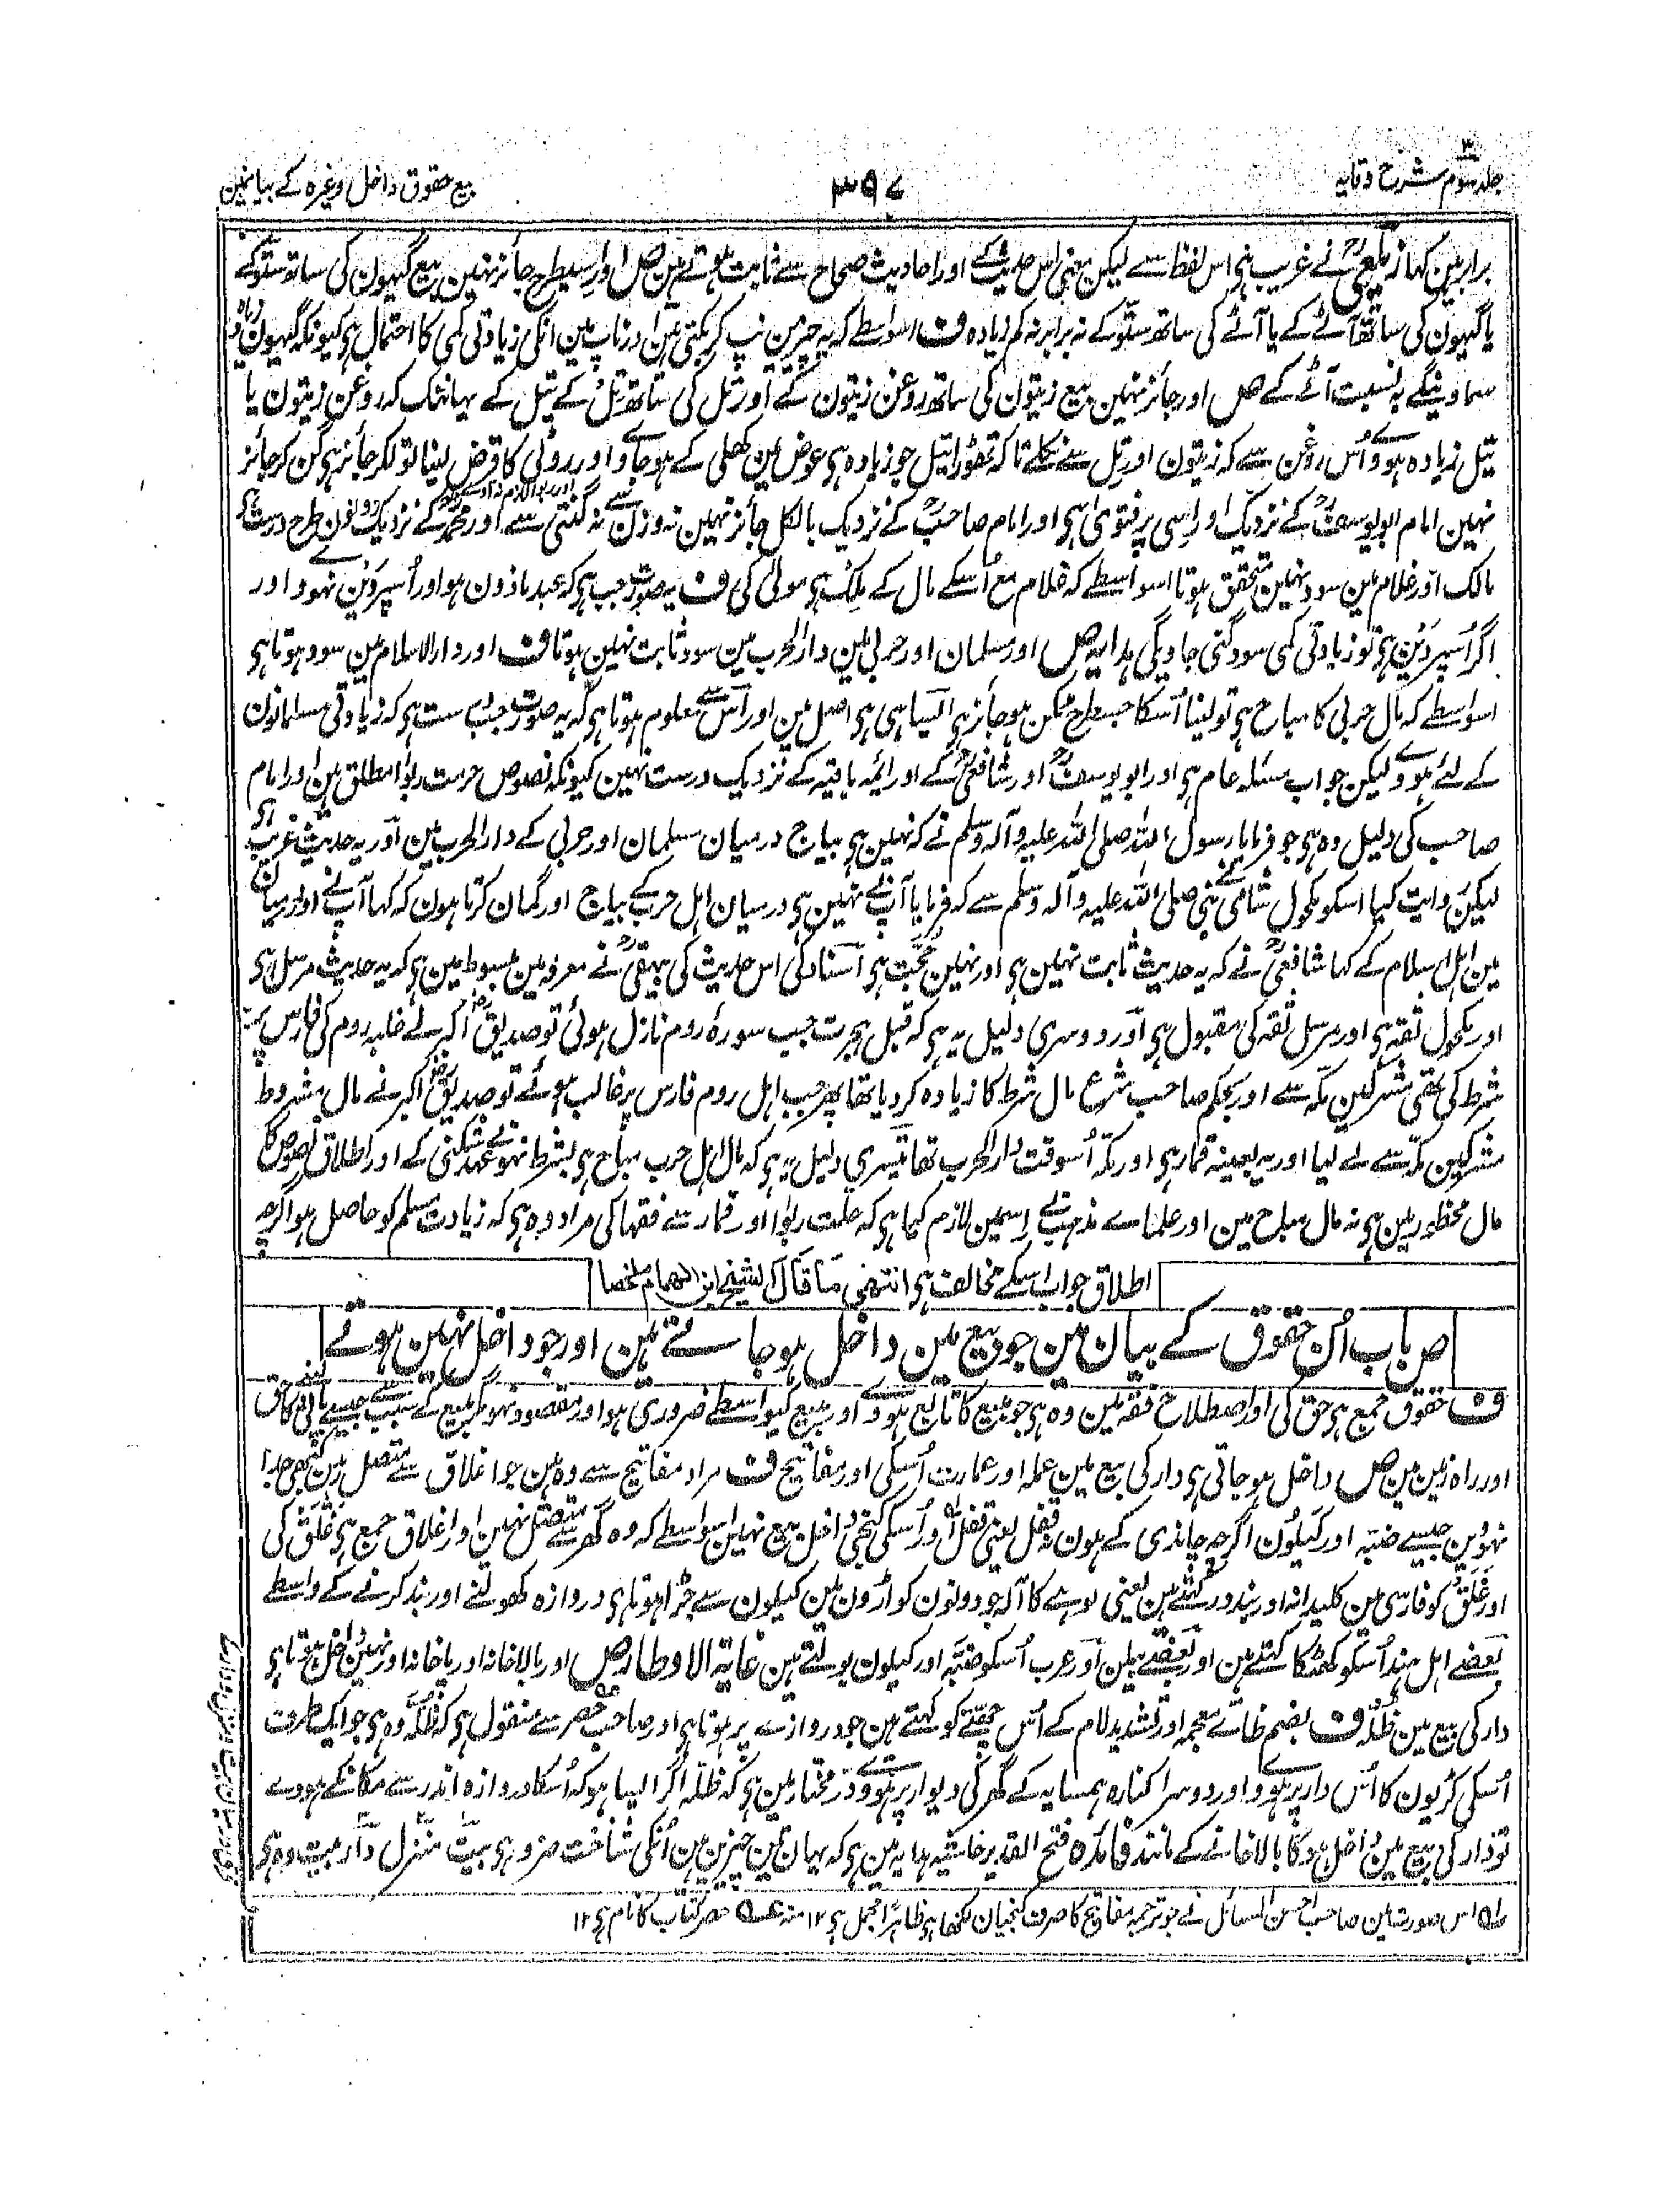 جلد سوم شرح وقایہ
۳۹۷
بیع حقوق داخل وغیرہ کے بیانمین
برابر ہین کہا زیلعیؒ نے غریب ہی اس لفظ سے لیکن معنی اس حدیث کے اور احادیث صحاح سے ثابت ہوتے ہین ص اور اسیطرح جائز نہین بیع گیہون کی ساتھ ستو کے
یا گیہون کی ساتھ آٹے کے یا آٹے کی ساتھ ستو کے نہ برابر نہ کم زیادہ ف اسواسطے کہ یہ چیزین نپ کر بکتی ہین اور ناپ مین انکی زیادتی کمی کا احتمال ہی کیونکہ گیہون زیادہ
سماوینگے بہ نسبت آٹے کے ص اور جائز نہین بیع زیتون کی ساتھ روغن زیتون کے اور تل کی ساتھ تل کے تیل کے یہانتک کہ روغن زیتون یا
تیل زیادہ ہووے اُس روغن سے کہ زیتون اور تل سے نکلے تاکہ تھوڑا تیل جو زیادہ ہی عوض مین کھلی کے ہوجاوے اور روٹی کا قرض لینا تولکر جائز ہی گن کر جائز
نہین امام ابو یوسفؒ کے نزدیک اور اسی پر فتویٰ ہی اور امام صاحبؒ کے نزدیک بالکل جائز نہین نہ وزن سے نہ گنتی سے اور محمدؒ کے نزدیک دونون طرح درست ہی
مالک اور غلام مین سود نہین متحقق ہوتا اسواسطے کہ غلام مع اُسکے مال کے مِلک ہی مولیٰ کی ف یہ صورت جب ہی کہ عبد ماذون ہو اور اُسپر دَین نہووے اور
اگر اُسپر دَین ہی تو زیادتی کمی سود گنی جاویگی ہدایہ ص اور مسلمان اور حربی مین دار الحرب مین سود ثابت نہین ہوتا ف اور دار الاسلام مین سود ہوتا ہی
اسواسطے کہ مال حربی کا مباح ہی تو لینا اُسکا جسطرح ممکن ہو جائز ہی ایسا ہی ہی اصل مین اور اس سے معلوم ہوتا ہی کہ یہ صورت جب درست ہی کہ زیادتی مسلمانون
کے لئے ہووے لیکن جواب مسئلہ عام ہی اور ابو یوسفؒ اور شافعیؒ کے اور ائمہ باقیہ کے نزدیک درست نہین کیونکہ نصوص حرمت ربوا مطلق ہین اور امام
صاحب کی دلیل وہ ہی جو فرمایا رسول اللہ صلی اللہ علیہ وآلہ وسلم نے کہ نہین ہی بیاج درمیان مسلمان اور حربی کے دار الحرب مین اور یہ حدیث غریب ہی
لیکن روایت کیا اسکو مکحول شامی نے نبی صلی اللہ علیہ وآلہ وسلم سے کہ فرمایا آپ نے نہین ہی درمیان اہل حرب کے بیاج اور گمان کرتا ہون کہ کہا آپ نے اور درمیان
مین اہل اسلام کے کہا شافعیؒ نے کہ یہ حدیث ثابت نہین ہی اور نہین حجت ہی اسناد کی اس حدیث کی بیہقیؒ نے معرفہ مین مبسوط مین ہی کہ یہ حدیث مرسل ہی
اور مکحول ثقہ ہی اور مرسل ثقہ کی مقبول ہی اور دوسری دلیل یہ ہی کہ قبل ہجرت جب سورۂ روم نازل ہوئی تو صدیق اکبرؓ نے غلبہ روم کی فارس پر
شرط کی تھی مشرکین مکہ سے اور بحکم صاحب شرع مال شرط کا زیادہ کر دیا تھا پھر جب اہل روم فارس پر غالب ہوئے تو صدیق اکبر نے مال مشروط
مشرکین مکہ سے لے لیا اور یہ بعینہ قمار ہی اور مکہ اُسوقت دار الحرب تھا تیسری دلیل یہ ہی کہ مال اہل حرب مباح ہی بشرط نہونے عہد شکنی کے اور اطلاق نصوص کا
مال محظور مین ہی نہ مال مباح مین اور علماے مذہب نے اسمین لازم کیا ہی کہ حلت ربوا اور قمار سے فقہا کی مراد وہ ہی کہ زیادت مسلم کو حاصل ہو اگرچہ
اطلاق جواب اسکے مخالف ہی انتہیٰ ما قال الشیخ ابن الہمام ملخصا
ص باب اُن حقوق کے بیان مین جو بیع مین داخل ہو جاتے ہین اور جو داخل نہین ہوتے
ف حقوق جمع ہی حق کی اور اصطلاح فقہ مین وہ ہی جو مبیع کا تابع ہووے اور مبیع کیواسطے ضروری ہو اور مقصود نہو مگر مبیع کے سبب سے جیسے پانی کا حق
اور راہ زمین مین ص داخل ہو جاتی ہی دار کی بیع مین عملہ اور عمارت اُسکی اور مفاتیح ف مراد مفاتیح سے وہ ہین جو اغلاق سے متصل ہین کبھی جدا
نہوین جیسے ضبہ اور کیلون اگرچہ چاندی کے ہون نہ قفل یعنی قفل اور اُسکی کنجی داخل بیع نہین اسواسطے کہ وہ گھر سے متصل نہین اور اغلاق جمع ہی غَلَق کی
اور غَلَق کو فارسی مین کلیدانہ اور بند در کہتے ہین یعنی لوہے کا آلہ جو دونون کواڑون مین کیلون سے جڑا ہوتا ہی دروازہ کھولنے اور بند کرنے کے واسطے
بعضے اہل ہند اُسکو کھٹکا کہتے ہین اور بعضے بیلن اور عرب اُسکو ضبّہ اور کیلون بولتے ہین غایۃ الاوطار ص اور بالاخانہ اور پاخانہ اور نہین داخل ہوتا ہی
دار کی بیع مین ظُلّہ ف بضم ظاے معجمہ اور تشدید لام کے اُس چھتے کو کہتے ہین جو دروازے پر ہوتا ہی اور صاحب حصر سے منقول ہی کہ ظلّہ وہ ہی جو ایک طرف
اُسکی کڑیون کا اُس دار پر ہووے اور دوسرا کنارہ ہمسایہ کے گھر کی دیوار پر ہووے درمختار مین ہی کہ ظلّہ اگر ایسا ہو کہ اُسکا دروازہ اندر سے مکانکے ہووے
تو دار کی بیع مین داخل ہوگا بالاخانے کے مانند فائدہ فتح القدیر حاشیہ ہدایہ مین ہی کہ یہان تین چیزین ہین اُنکی شناخت ضرور ہی بیت منزل دار بیت وہ ہی
اس صورت مین صاحب احسن المسائل نے جو ترجمہ مفاتیح کا صرف کنجیان لکھا ہی ظاہرًا مجمل ہی ۱۲ منہ حصر کتاب کا نام ہی ۱۲